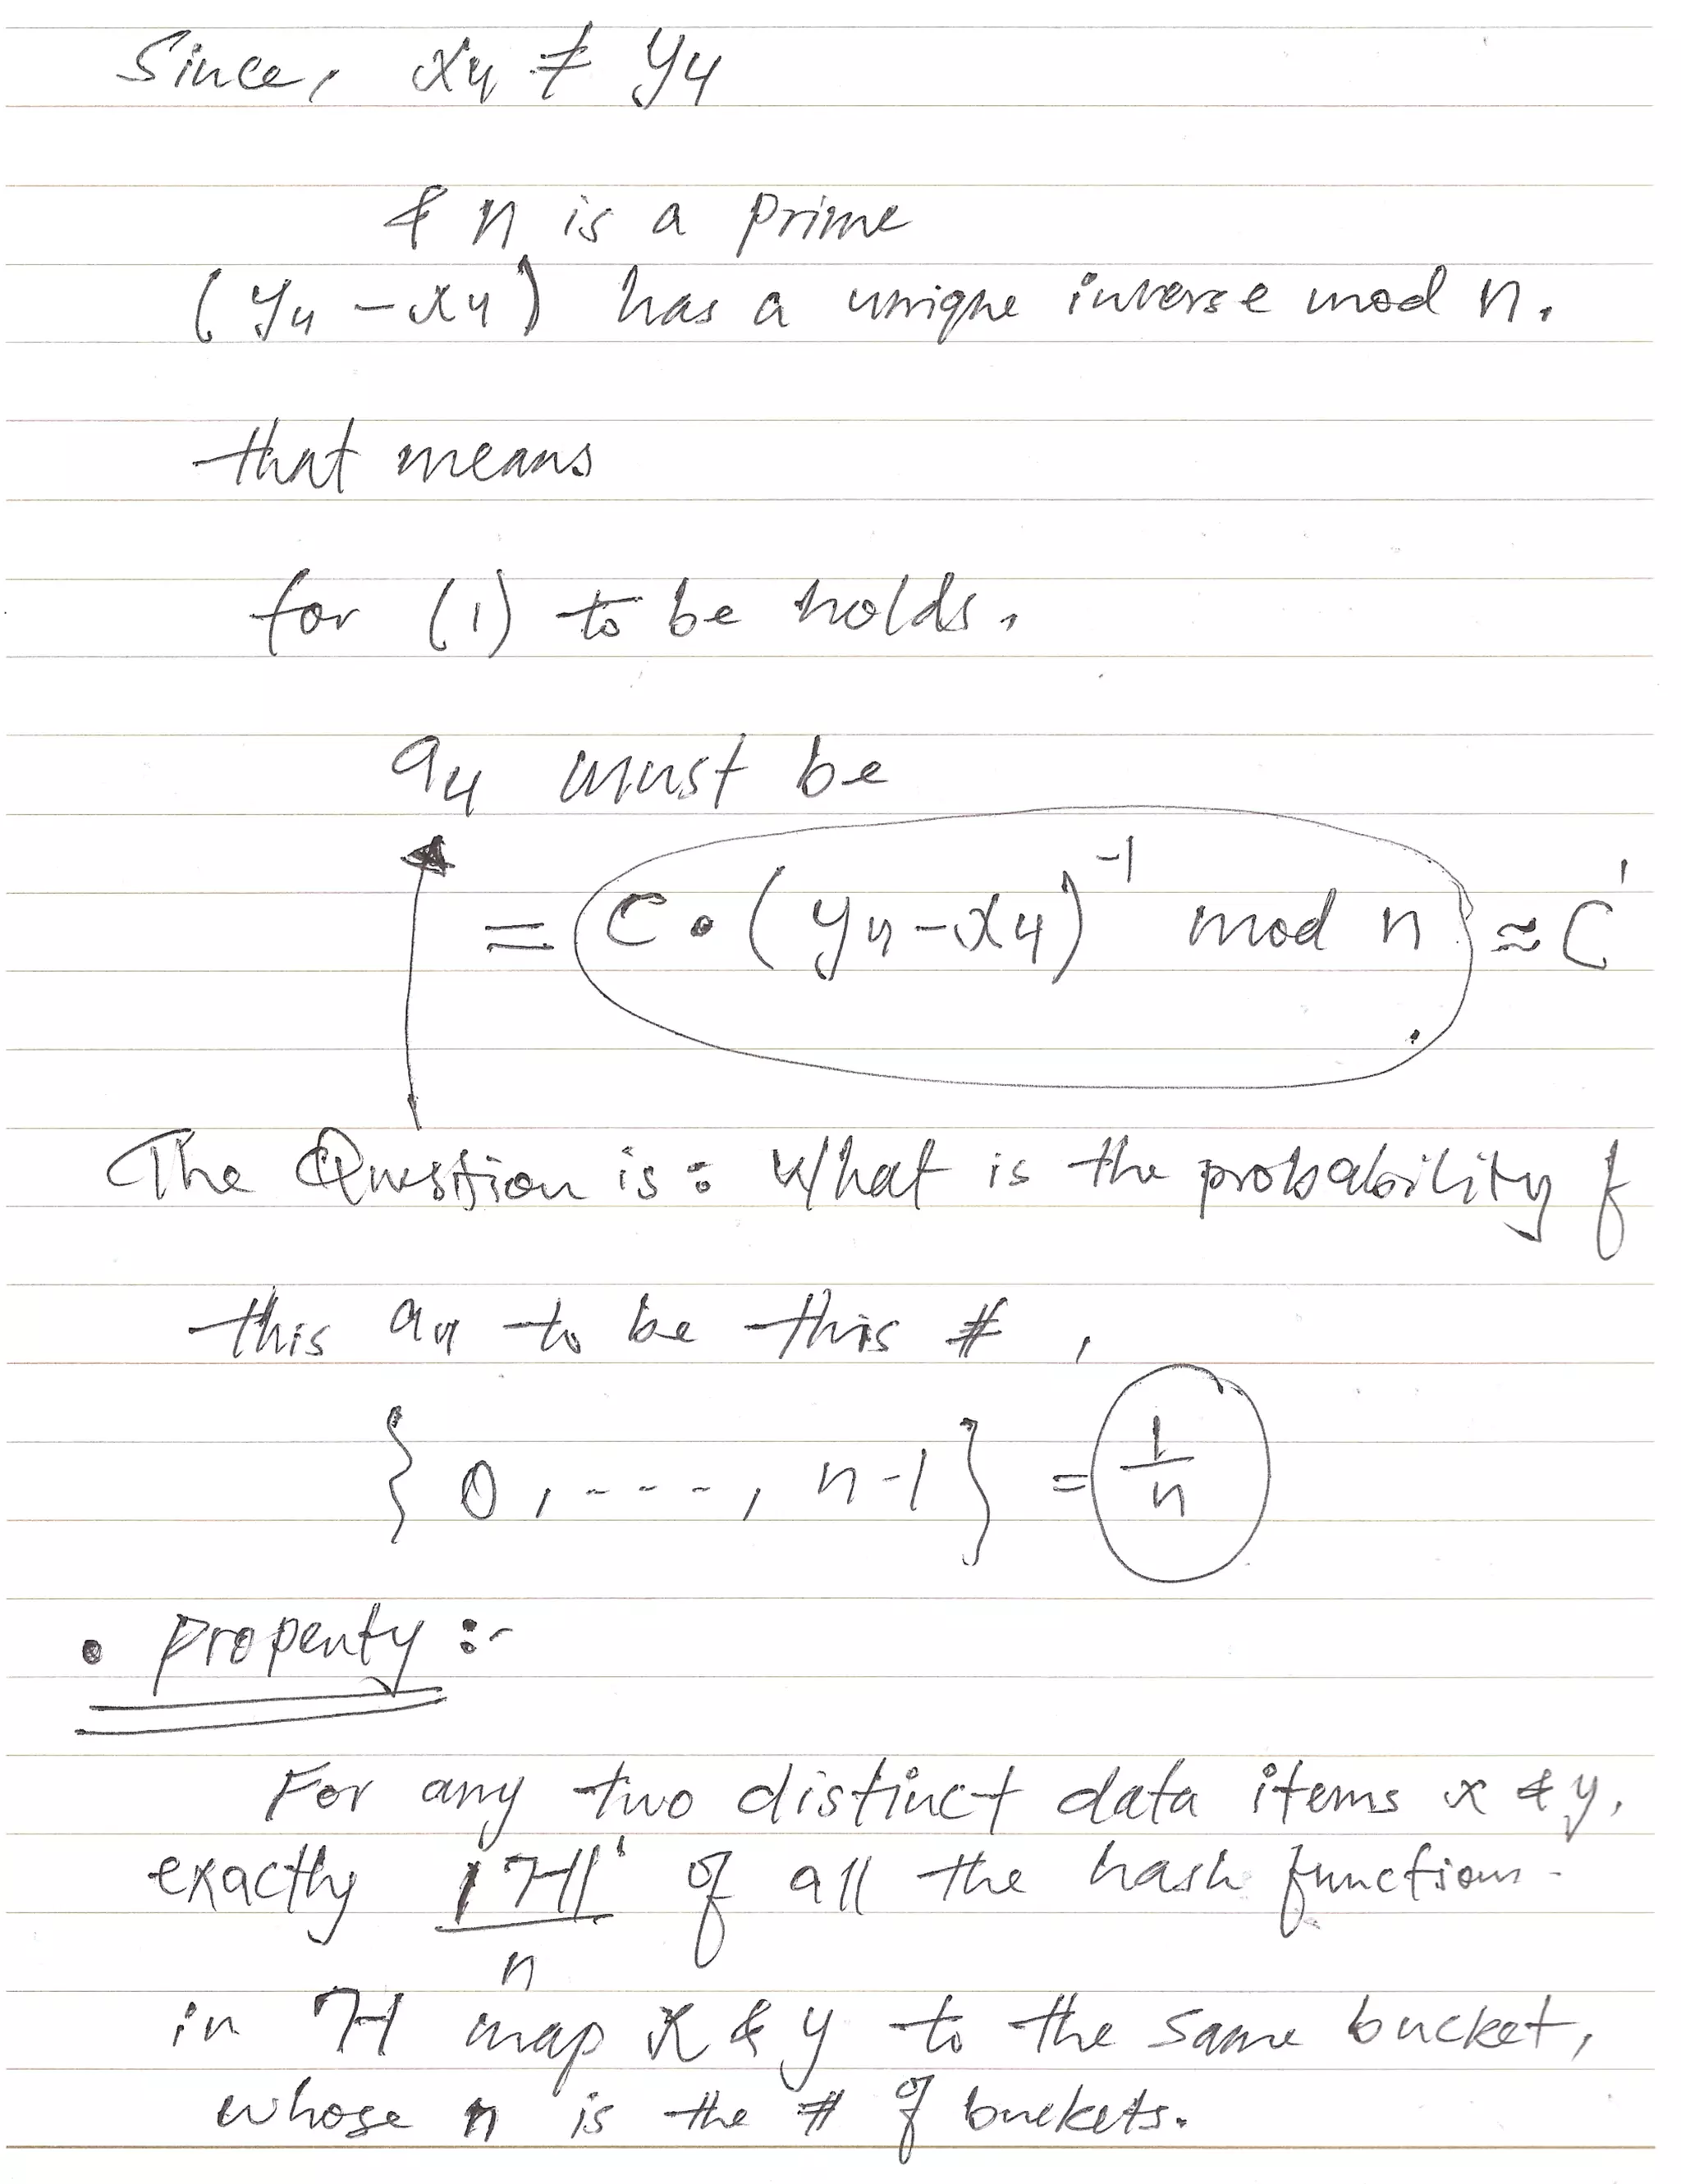 Since, x4 ≠ y4
& n is a prime
(y4 - x4) has a unique inverse mod n.
that means
for (1) to be holds,
a4 must be
= C • (y4 - x4)^-1 mod n ≈ C'
The Question is: What is the probability of
this a4 to be this #,
{ 0, ----, n-1 } = 1/n
• Property :-
For any two distinct data items x & y,
exactly |H|/n of all the hash functions
in H map x & y to the same bucket,
whose n is the # of buckets.